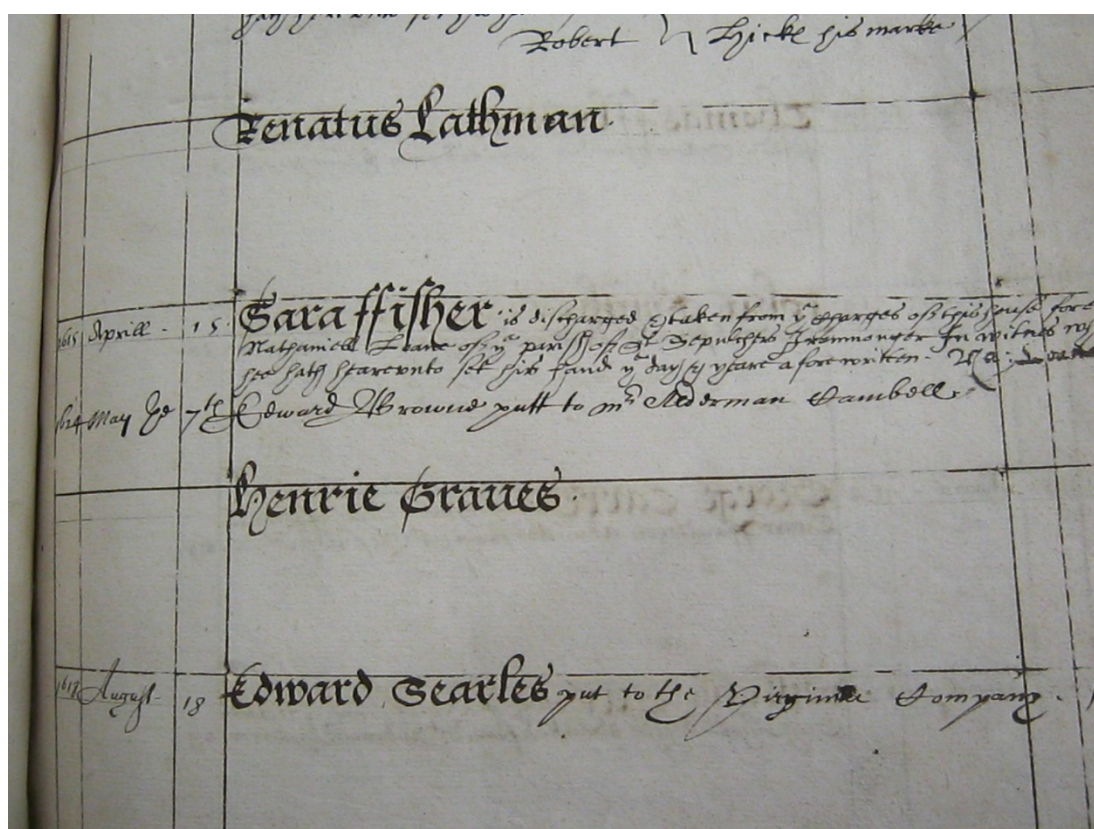 Robert Hicke his marke
Renatus Lathman
1615 Aprill . 15 Sara ffisher is discharged & taken from ye charges of this house fore
Nathaniell of ye parish of St Sepulchers Iremonger In witnes
hee hath hearevnto set his hand ye day & yeare aforewritten.
May ye 7th Edward Browne putt to mr Alderman Cambell
Henrie Graues
August 18 Edward Searles put to the Virginia Company.